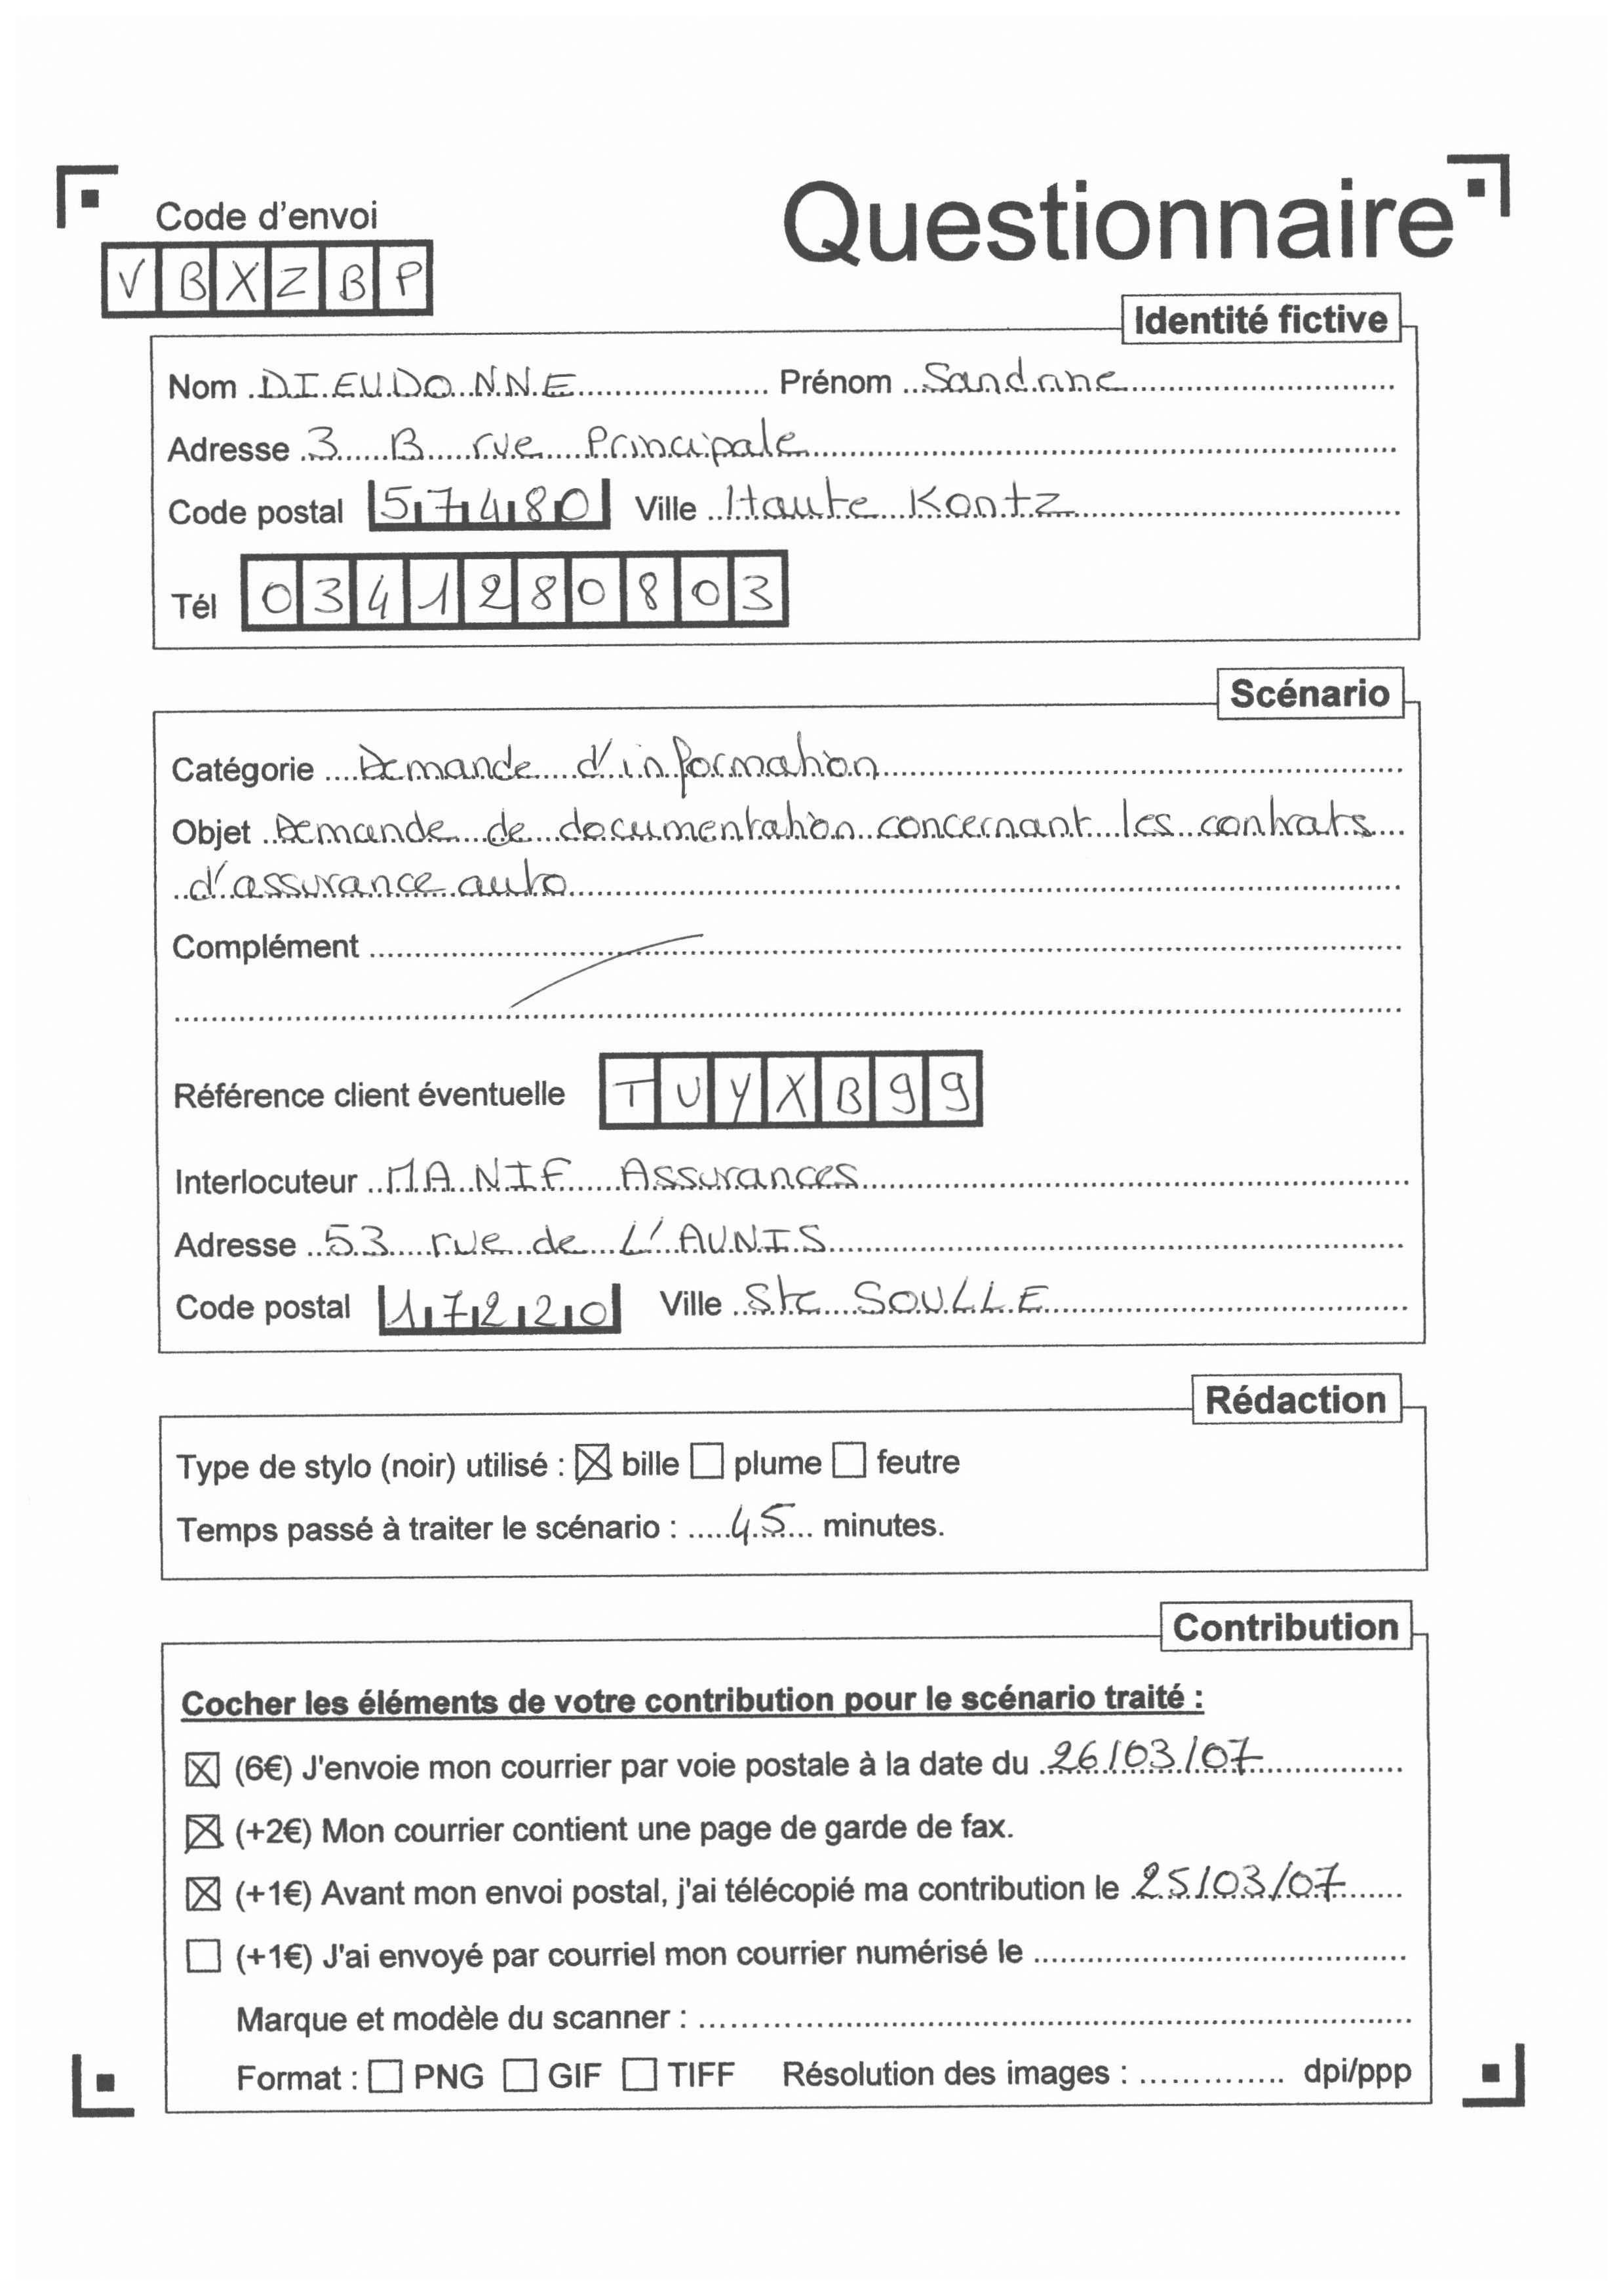 Questionnaire
Code d'envoi
VBXZBP
Identité fictive
Nom DIEUDONNE Prénom Sandrine
Adresse 3 B rue Principale
Code postal 57480 Ville Haute Kontz
Tél 0341280803
Scénario
Catégorie Demande d'information
Objet Demande de documentation concernant les contrats
d'assurance auto
Complément
Référence client éventuelle TUYXB99
Interlocuteur MANIF Assurances
Adresse 53 rue de L'AUNIS
Code postal 17220 Ville Ste SOULLE
Rédaction
Type de stylo (noir) utilisé : ☒ bille ☐ plume ☐ feutre
Temps passé à traiter le scénario : 45 minutes.
Contribution
Cocher les éléments de votre contribution pour le scénario traité :
☒ (6€) J'envoie mon courrier par voie postale à la date du 26/03/07
☒ (+2€) Mon courrier contient une page de garde de fax.
☒ (+1€) Avant mon envoi postal, j'ai télécopié ma contribution le 25/03/07
☐ (+1€) J'ai envoyé par courriel mon courrier numérisé le
Marque et modèle du scanner :
Format : ☐ PNG ☐ GIF ☐ TIFF Résolution des images : dpi/ppp